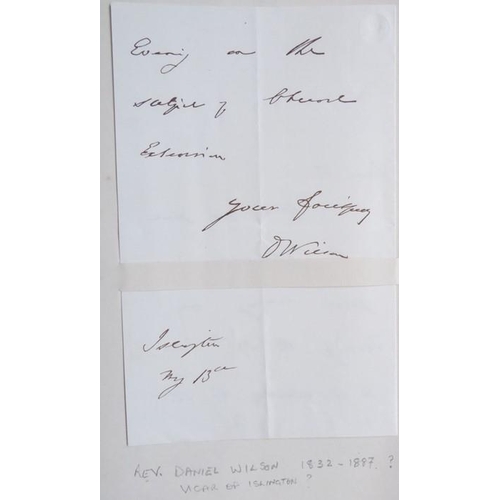 Evening on the
subject of Church
Extension
yours faithfully
D Wilson
Islington
My 13th
REV. DANIEL WILSON 1832 - 1887 ?
VICAR OF ISLINGTON ?